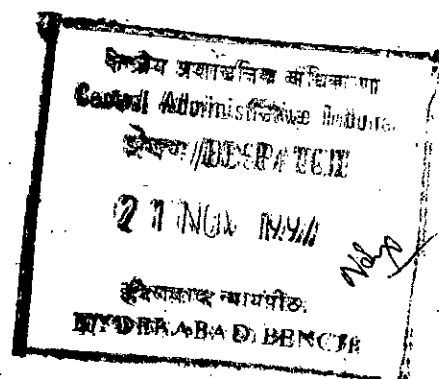 केन्द्रीय प्रशासनिक अधिकरण
Central Administrative Tribunal
प्रेषण/DESPATCH
21 NOV 1994
हैदराबाद न्यायपीठ
HYDERABAD BENCH